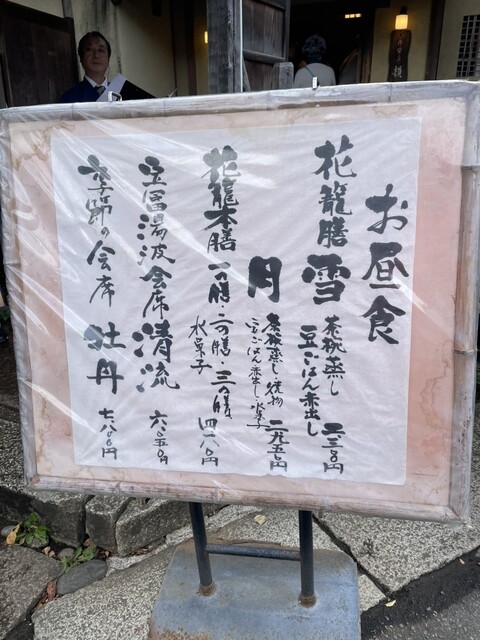 お昼食
花籠膳 雪 茶椀蒸し
豆ごはん 赤出し 円
月 茶椀蒸し・焼物
豆ごはん・赤出し・水菓子 二九五〇円
花籠本膳 一の膳・二の膳・三の膳
水菓子 四一八〇円
豆冨湯波会席 清流 六〇五〇円
季節の会席 牡丹 七八〇〇円